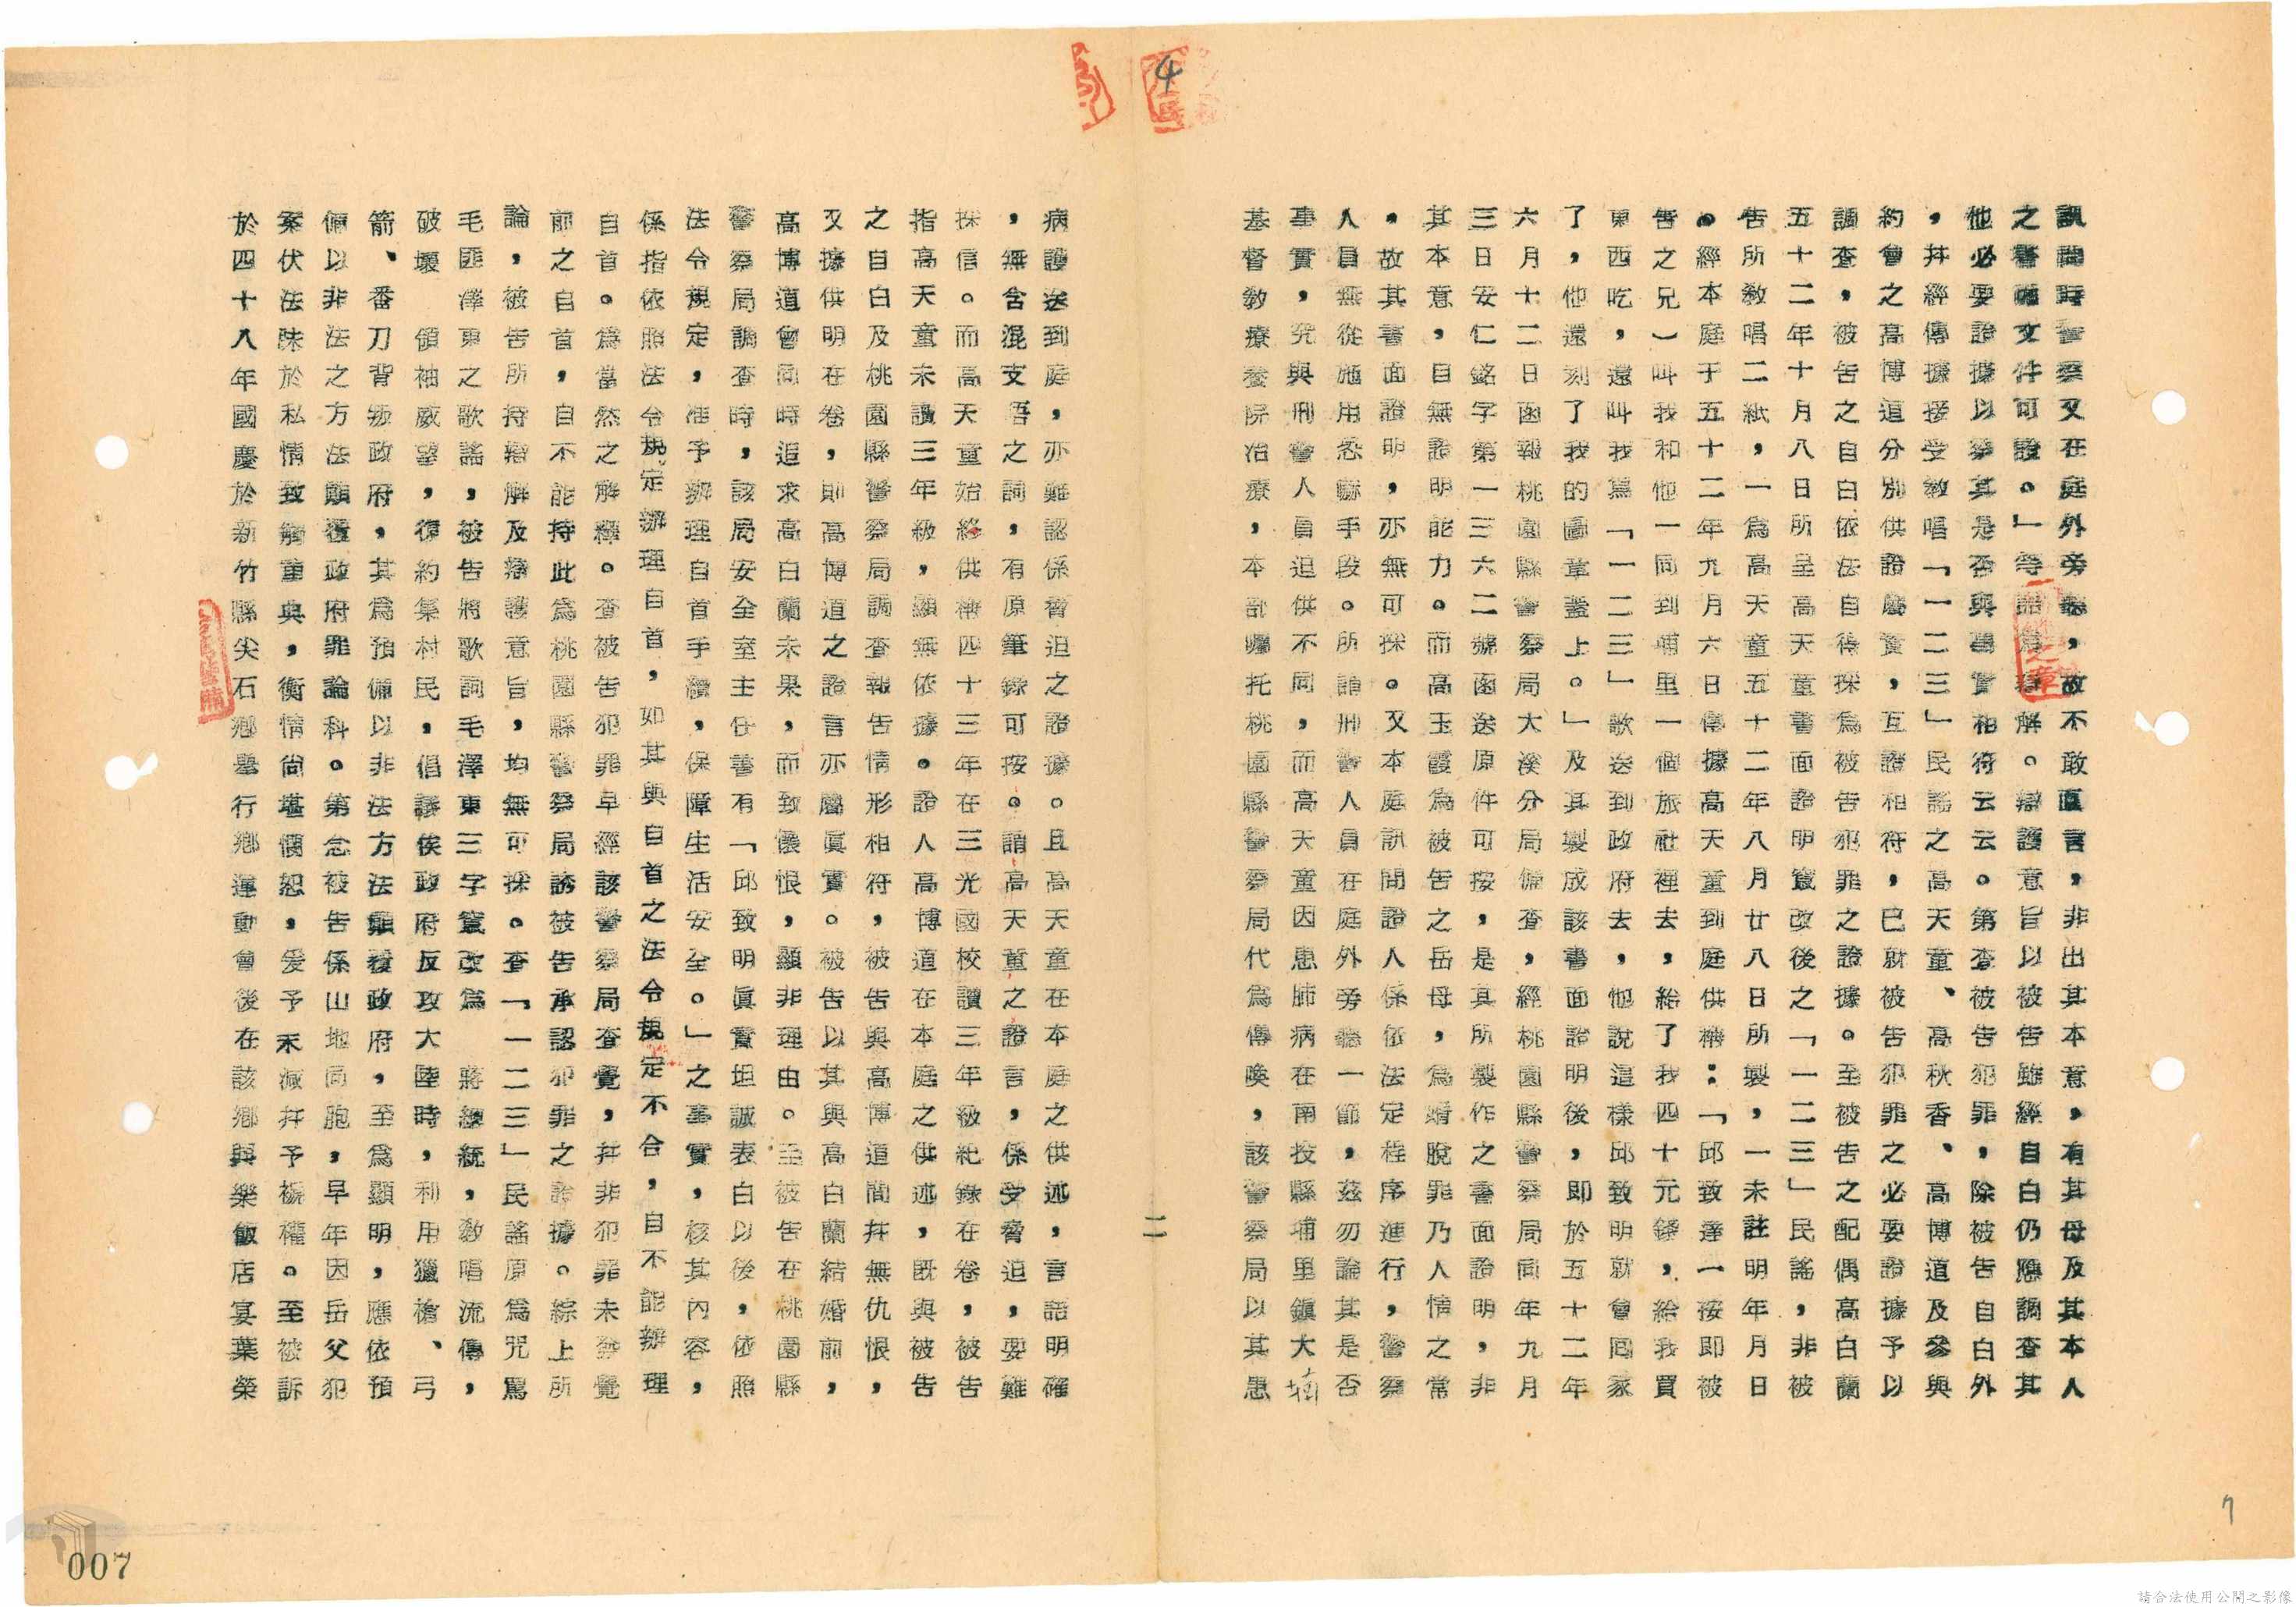 訊問時警察又在庭外旁聽，故不敢直言，非出其本意，有其母及其本人
之書面文件可證。」等語為辯解。辯護意旨以被告雖經自白仍應調查其
他必要證據以察其是否與事實相符云云。第查被告犯罪，除被告自白外
，幷經傳據接受教唱「一二三」民謠之高天童、高秋香、高博道及參與
約會之高博道分別供證屬實，互證相符，已就被告犯罪之必要證據予以
調查，被告之自白依法自得採為被告犯罪之證據。至被告之配偶高白蘭
五十二年十月八日所呈高天童書面證明竄改後之「一二三」民謠，非被
告所教唱二紙，一為高天童五十二年八月廿八日所製，一未註明年月日
。經本庭于五十二年九月六日傳據高天童到庭供稱：「邱致達一按即被
告之兄）叫我和他一同到埔里一個旅社裡去，給了我四十元錢，給我買
東西吃，還叫我寫「一二三」歌送到政府去，他說這樣邱致明就會回家
了，他還刻了我的圖章蓋上。」及其製成該書面證明後，即於五十二年
六月十二日函報桃園縣警察局大溪分局備查，經桃園縣警察局同年九月
三日安仁銘字第一三六二號函送原件可按，是其所製作之書面證明，非
其本意，自無證明能力。而高玉霞為被告之岳母，為婿脫罪乃人情之常
，故其書面證明，亦無可採。又本庭訊問證人係依法定程序進行，警察
人員無從施用恐嚇手段。所謂刑警人員在庭外旁聽一節，茲勿論其是否
事實，究與刑警人員迫供不同，而高天童因患肺病在南投縣埔里鎮大埔
基督教療養院治療，本部囑托桃園縣警察局代為傳喚，該警察局以其患
二
病護送到庭，亦難認係脅迫之證據。且高天童在本庭之供述，言語明確
，無含混支吾之詞，有原筆錄可按。謂高天童之證言，係受脅迫，要難
採信。而高天童始終供稱四十三年在三光國校讀三年級紀錄在卷，被告
指高天童未讀三年級，顯無依據。證人高博道在本庭之供述，既與被告
之自白及桃園縣警察局調查報告情形相符，被告與高博道間幷無仇恨，
又據供明在卷，則高博道之證言亦屬眞實。被告以其與高白蘭結婚前，
高博道會同時追求高白蘭未果，而致懷恨，顯非理由。至被告在桃園縣
警察局調查時，該局安全室主任書有「邱致明眞實坦誠表白以後，依照
法令規定，准予辦理自首手續，保障生活安全。」之事實，核其內容，
係指依照法令規定辦理自首，如其與自首之法令規定不合，自不能辦理
自首。為當然之解釋。查被告犯罪早經該警察局查覺，幷非犯罪未發覺
前之自首，自不能持此為桃園縣警察局誘被告承認犯罪之論據。綜上所
論，被告所持辯解及辯護意旨，均無可採。查「一二三」民謠原為咒罵
毛匪澤東之歌謠，被告將歌詞毛澤東三字竄改為　蔣總統，教唱流傳，
破壞　領袖威望，復約集村民，倡議俟政府反攻大陸時，利用獵槍、弓
箭、番刀背叛政府，其為預備以非法方法顛覆政府，至為顯明，應依預
備以非法之方法顛覆政府罪論科。第念被告係山地同胞，早年因岳父犯
案伏法昧於私情致觸重典，衡情尚堪憫恕，爰予未減幷予褫權。至被訴
於四十八年國慶於新竹縣尖石鄉舉行鄉運動會後在該鄉與樂飯店宴葉榮
4
7
007
請合法使用公開之影像